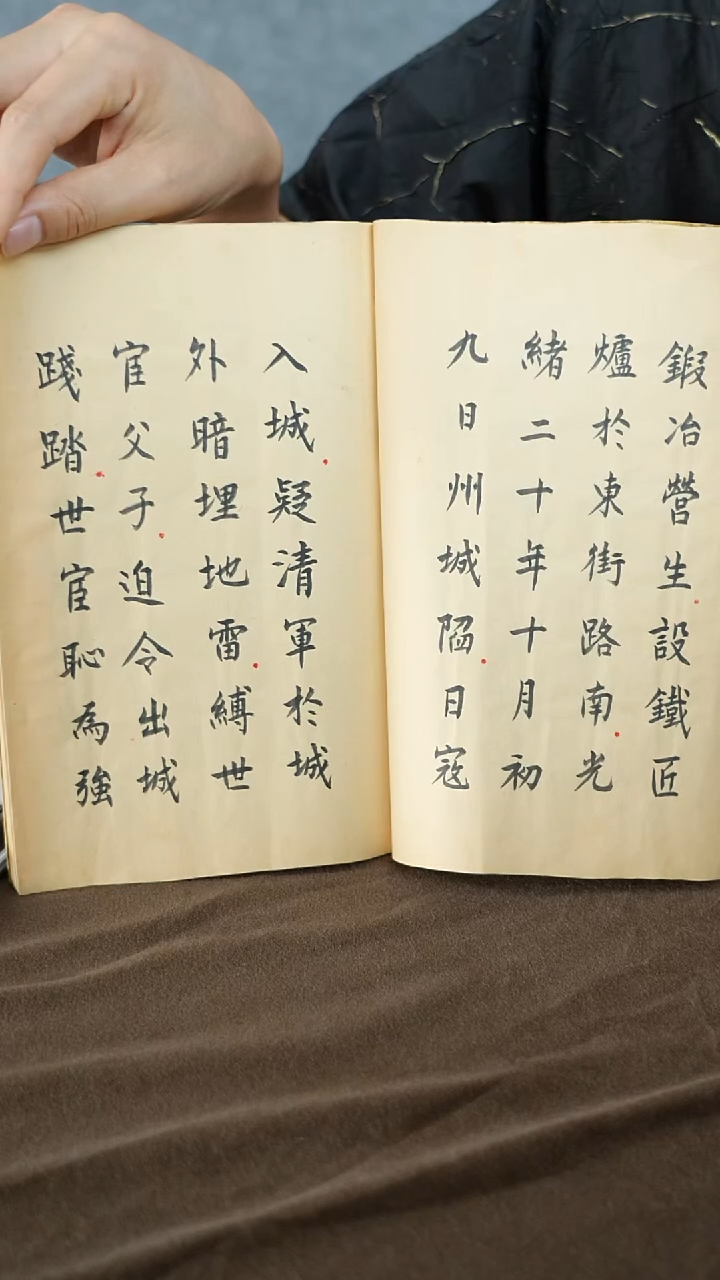 鍛冶營生設鐵匠
爐於東街路南光
緒二十年十月初
九日州城陷日寇
入城疑清軍於城
外暗埋地雷縛世
宦父子迫令出城
踐踏世宦恥為強